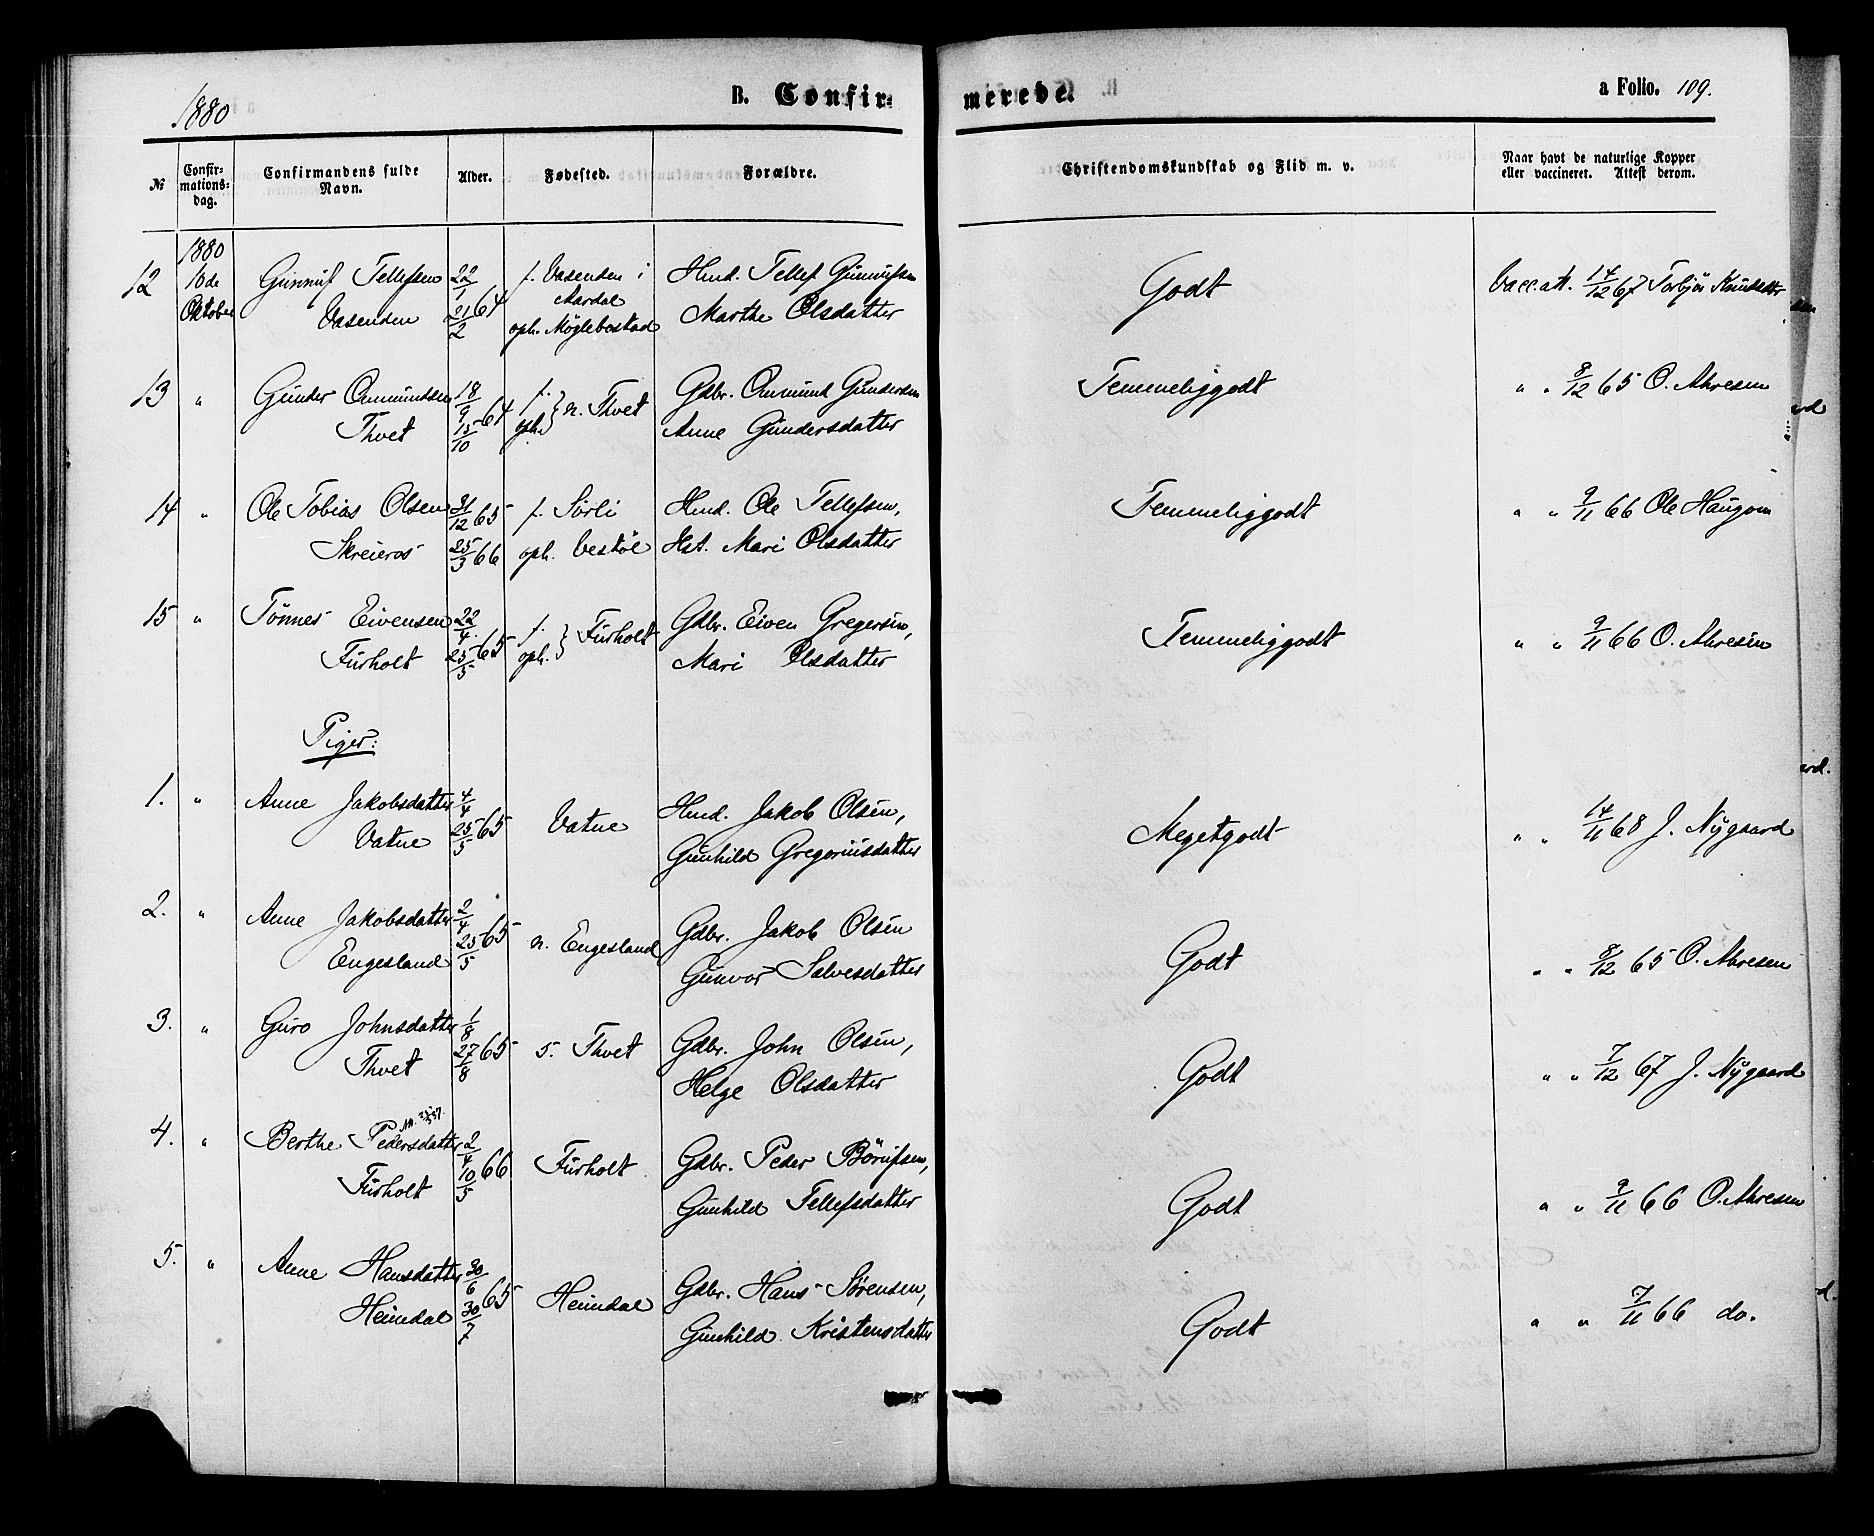 1880
B. Confir-
merede.
a Folio. 109.
№
Confir-
mations-
dag.
Confirmandens fulde
Navn.
Alder.
Fødested.
Forældre.
Christendomskundskab og Flid m. v.
Naar havt de naturlige Kopper
eller vaccineret. Attest derom.
1880
12 10de Gunnuf Tellefsen 22/1 f. Vasenden i Hmd. Tellef Gunnufsen Godt Vacc. att. 14/12 67 Torbjør Knudsen
Oktober Vasenden 21/2 64 Aardal
oph. Møglebostad Marthe Olsdatter
13 " Gunder Omundsen 18/9 64 f. Gdbr. Omund Gundersen Temmeliggodt " " 8/12 65 O. Ahresen
Thvet 15/10 oph. } n. Thvet Anne Gundersdatter
14 " Ole Tobias Olsen 31/12 65 f. Sørli Hmd. Ole Tellefsen, Temmeliggodt " " 9/11 66 Ole Haugom
Skreieros 25/3 66 oph. Vestøl Hst. Mari Olsdatter
15 " Tønnes Eivensen 22/4 65 f. Gdbr. Eiven Gregersen, Temmeliggodt " " 9/11 66 O. Ahresen
Furholt 25/5 oph. } Furholt Mari Olsdatter
Piger:
1. " Anne Jakobsdatter 4/4 65 Vatne Hmd. Jakob Olsen, Megetgodt " " 14/11 68 J. Nygaard
Vatne 25/5 Gunhild Gregoriusdatter
2. " Anne Jakobsdatter 2/4 65 n. Engesland Gdbr. Jakob Olsen Godt " " 8/12 65 O. Ahresen
Engesland 25/5 Gunvor Salvesdatter
3. " Guro Johnsdatter 1/8 65 s. Thvet Gdbr. John Olsen, Godt " " 7/12 67 J. Nygaard
Thvet 27/8 Helge Olsdatter
4. " Berthe Pedersdatter 2/4 66 Furholt Gdbr. Peder Børufsen, Godt " " 9/11 66 O. Ahresen
Furholt 10/5 Gunhild Tellefsdatter
5. " Anne Hansdatter 30/6 65 Heimdal Gdbr. Hans Sørensen, Godt " " 7/11 66 do.
Heimdal 30/7 Gunhild Kristensdatter